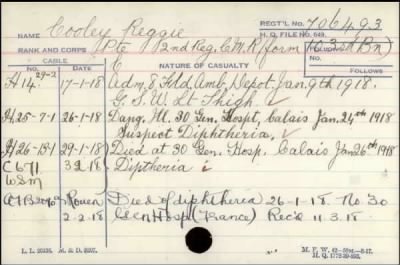 NAME Cooley Reggie REGT'L No. 706493
H.Q. FILE No. 649.
RANK AND CORPS Pte 2nd Reg. C.M.R. form (103rd Bn)
CABLE NATURE OF CASUALTY
No. DATE FOLLOWS
H 14 29-2 17-1-18 Adm, 8, Fld, Amb, Depot Jan. 9th 1918.
G. S. W. Lt Thigh.
H 25-7-1 26-1-18 Dang, Ill 30 Gen. Hospt, Calais Jan. 24th 1918
Suspect Diphtheria,
H 26-18-1 29-1-18 Died at 30 Gen. Hosp. Calais Jan 26th 1918
C 671 3 2 18 Diptheria
WSM
Rouen Died of diphtheria 26-1-18. No. 30
2-2-18 Gen Hosp (France) Rec'd 11.3.18
L. L. M. & D.
M. F. W.
H. Q.